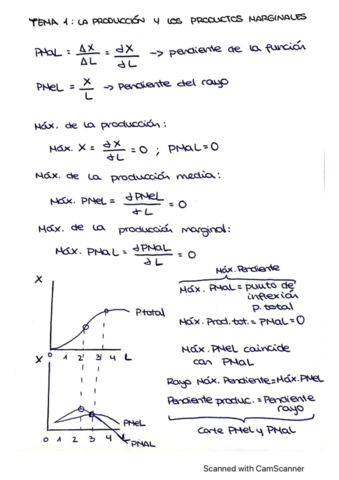 TEMA 1: LA PRODUCCIÓN Y LOS PRODUCTOS MARGINALES
PMaL = ΔX/ΔL = dX/dL → pendiente de la función
PMeL = X/L → Pendiente del rayo
Máx. de la producción:
Máx. X = dX/dL = 0 ; PMaL = 0
Máx. de la producción media:
Máx. PMeL = dPMeL/dL = 0
Máx. de la producción marginal:
Máx. PMaL = dPMaL/dL = 0
Máx. Pendiente
Máx. PMaL = punto de
inflexión
p. total
Máx. Prod. tot. = PMaL = 0
Máx. PMeL coincide
con PMaL
Rayo Máx. Pendiente = Máx. PMeL
Pendiente produc. = Pendiente
rayo
Corte PMeL y PMaL
X
P. total
0 1 2 3 4 L
X
PMeL
PMaL
0 1 2 3 4
Scanned with CamScanner